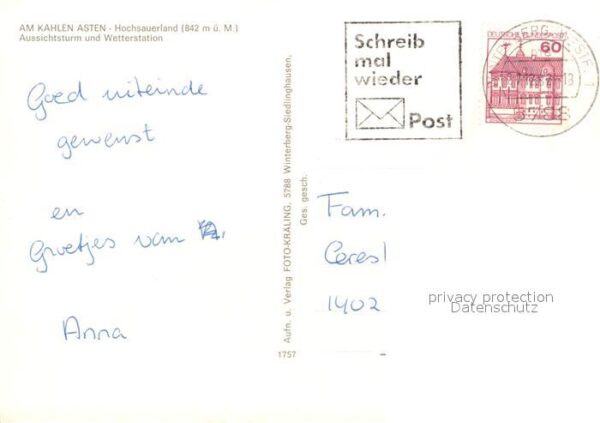 AM KAHLEN ASTEN - Hochsauerland (842 m ü. M.)
Aussichtsturm und Wetterstation
Goed uiteinde
gewenst
en
Groetjes van
Anna
Aufn. u. Verlag FOTO-KRÄLING, 5788 Winterberg-Siedlinghausen,
Ges. gesch.
1757
Schreib
mal
wieder
Post
DEUTSCHE BUNDESPOST
60
5788
Fam.
1402
privacy protection
Datenschutz